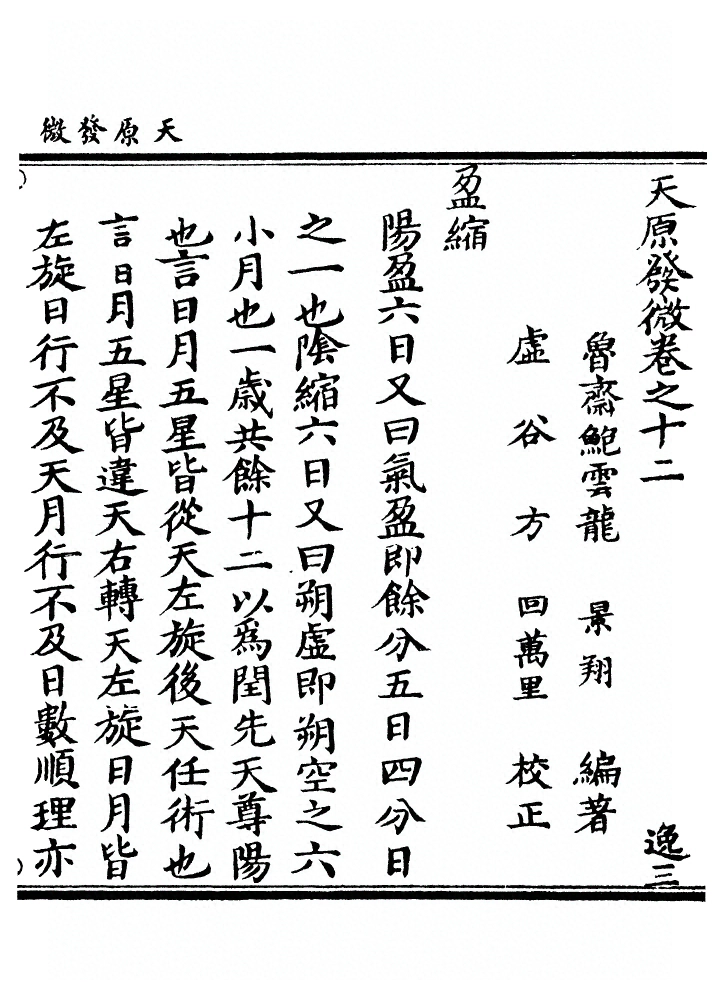 天原發微
天原發微卷之十二
逸三
魯齋鮑雲龍 景翔 編著
虛谷方 回萬里 校正
盈縮
陽盈六日又曰氣盈即餘分五日四分日
之一也陰縮六日又曰朔虛即朔空之六
小月也一歲共餘十二以爲閏先天尊陽
也言日月五星皆從天左旋後天任術也
言日月五星皆違天右轉天左旋日月皆
左旋日行不及天月行不及日數順理亦